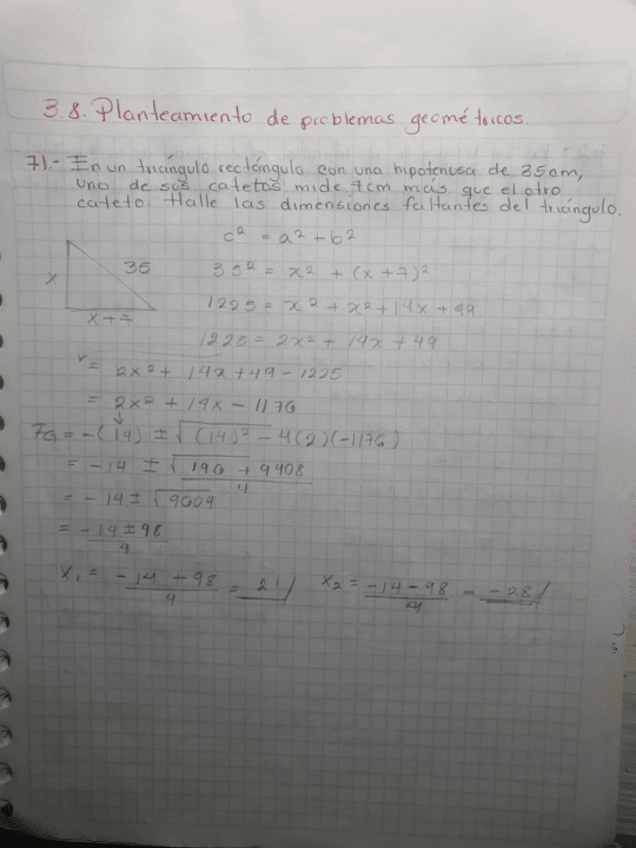 3.8. Planteamiento de problemas geométricos.
71.- En un triángulo rectángulo con una hipotenusa de 35cm,
uno de sus catetos mide 7cm más que el otro
cateto. Halle las dimensiones faltantes del triángulo.
c² = a² + b²
x 35 35² = x² + (x+7)²
1225 = x² + x² + 14x + 49
x+7
1225 = 2x² + 14x + 49
= 2x² + 14x + 49 - 1225
= 2x² + 14x - 1176
FG = -(14) ± √(14)² - 4(2)(-1176)
= -14 ± √196 + 9408
4
= -14 ± √9604
= -14 ± 98
4
x₁ = -14 + 98 = 21 x₂ = -14 - 98 = -28
4 4